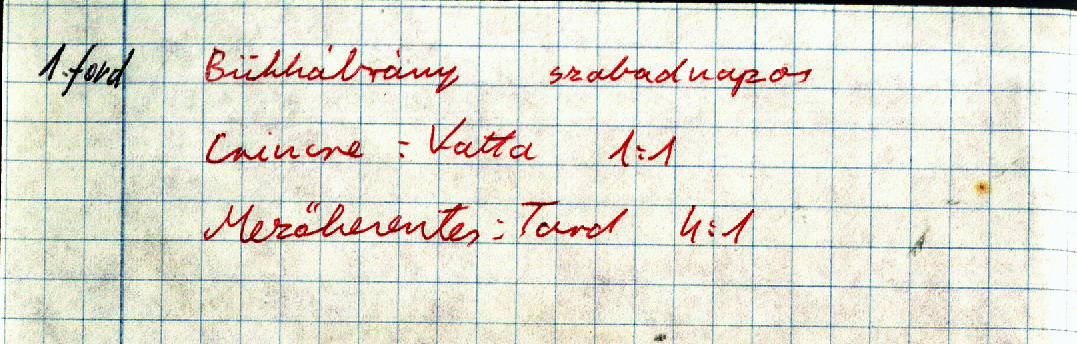 1. ford Bükkábrány szabadnapos
Csincse : Vatta 1:1
Mezőkeresztes : Tard 4:1